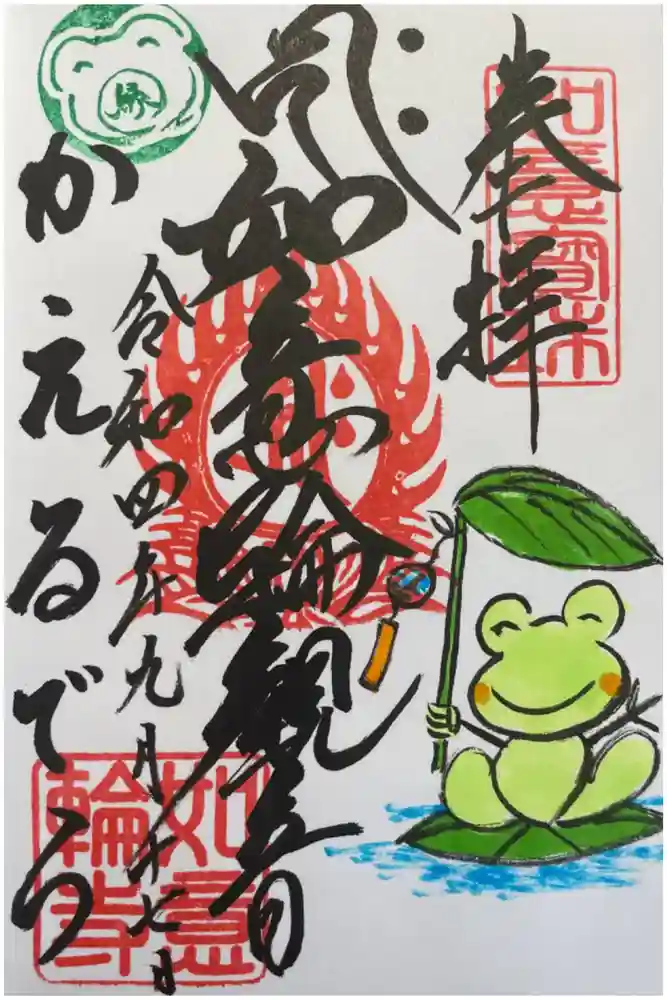 奉拝
如意寶珠
如意輪観音
令和四年九月十七日
かえるでら
如意
輪寺